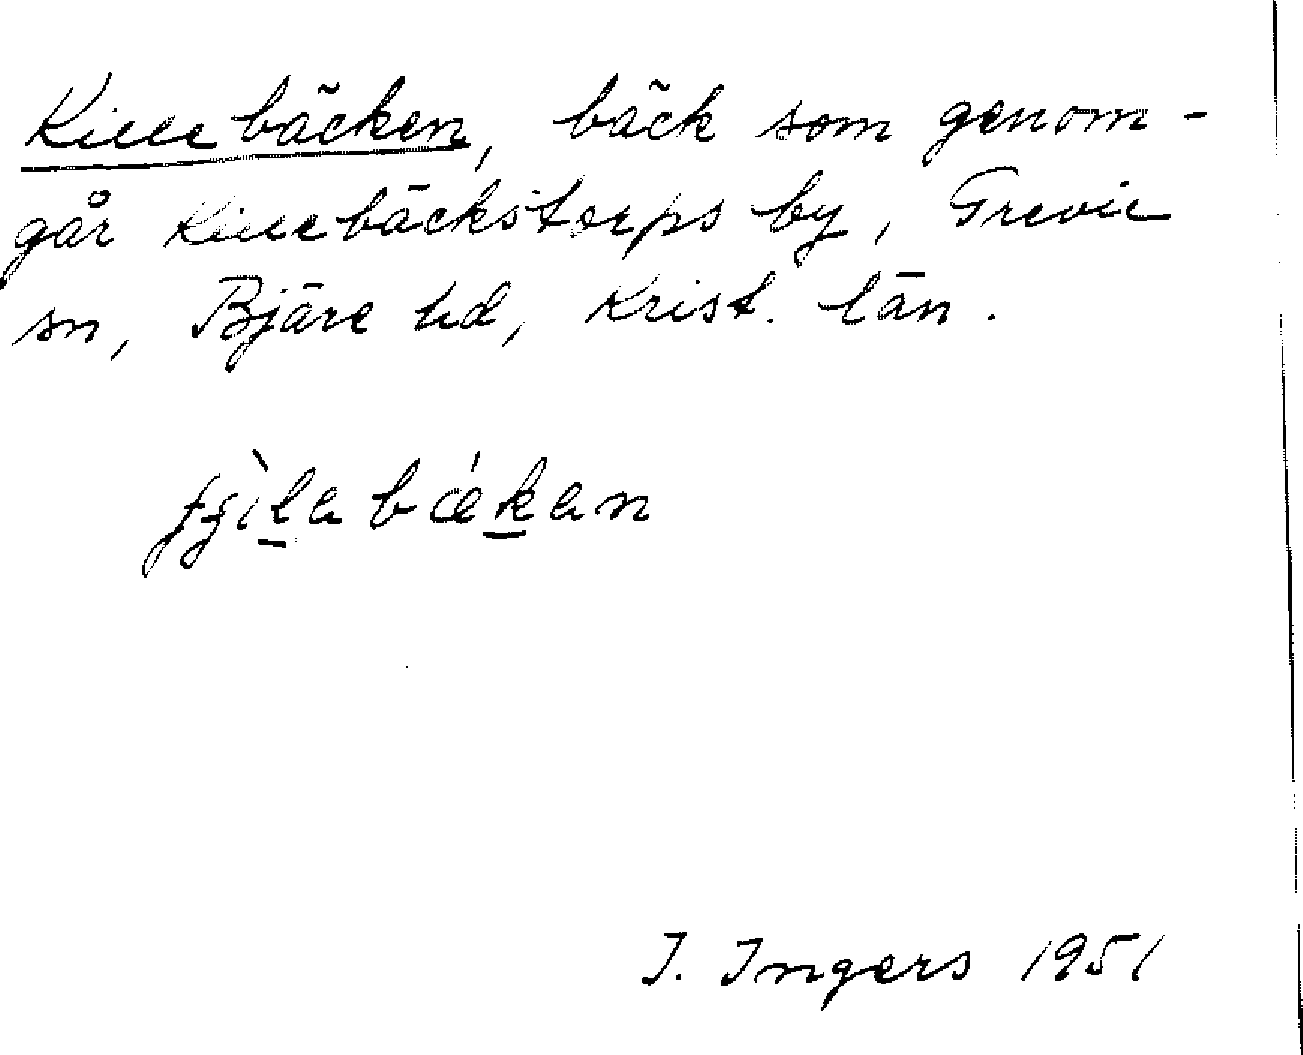 Killebäcken, bäck som genom-
går Killebäckstorps by, Grevie
sn, Bjäre hd, Krist. län.
I. Ingers 1951